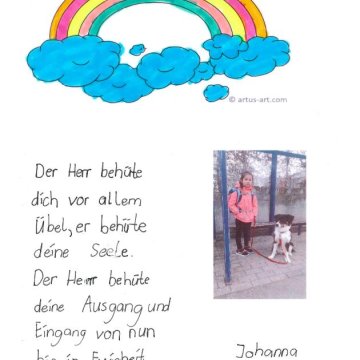 © artus-art.com
Der Herr behüte
dich vor allem
Übel, er behüte
deine Seele.
Der Herr behüte
deine Ausgang und
Eingang von nun
bis in Ewigkeit
Johanna